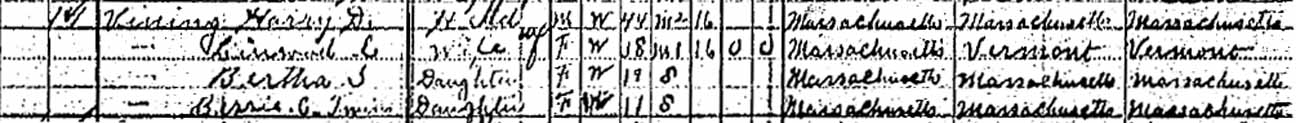 Vining Harry D. Head M W 44 M2 16 Massachusetts Massachusetts Massachusetts
— Wife F W 18 M1 16 0 0 Massachusetts Vermont Vermont
— Bertha S Daughter F W 19 S Massachusetts Massachusetts Massachusetts
— C. Daughter F W 11 S Massachusetts Massachusetts Massachusetts